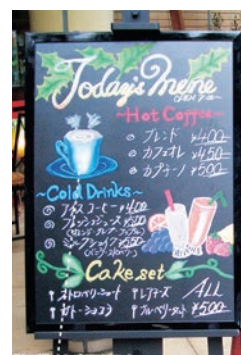 Today's Menu
OPEN 7:00~
~Hot Coffee~
◎ ブレンド ¥400-
◎ カフェオレ ¥450-
◎ カプチーノ ¥500-
~Cold Drinks~
◎ アイスコーヒー ¥400
◎ フレッシュジュース ¥500
(オレンジ・グレープ・アップル)
◎ ミルクシェイク ¥550
Cake set
ストロベリーショート
レアチーズ
ALL
ガトーショコラ
ブルーベリータルト
¥500-